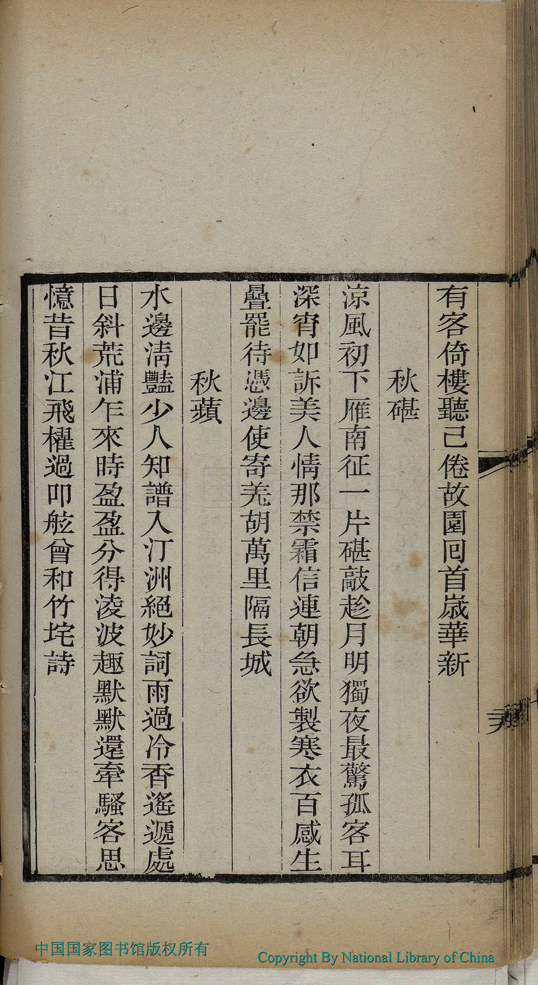 有客倚樓聽已倦故園回首歲華新
秋碪
涼風初下雁南征一片碪敲趁月明獨夜最驚孤客耳
深宵如訴美人情那禁霜信連朝急欲製寒衣百感生
疊罷待憑邊使寄羌胡萬里隔長城
秋蘋
水邊淸豔少人知譜入汀洲絕妙詞雨過冷香遙遞處
日斜荒浦乍來時盈盈分得淩波趣默默還牽騷客思
憶昔秋江飛櫂過叩舷曾和竹垞詩
中国国家图书馆版权所有
Copyright By National Library of China